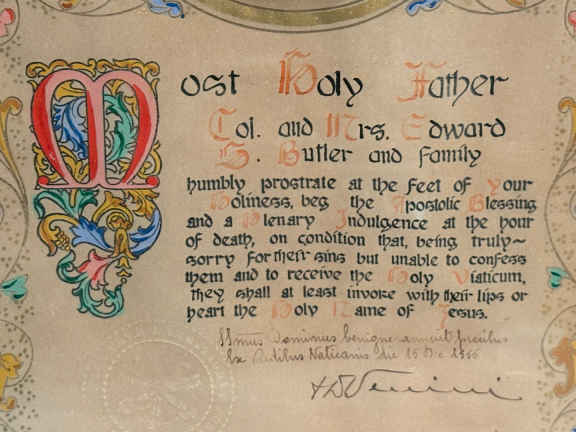 Most Holy Father
Col. and Mrs. Edward
G. Butler and Family
humbly prostrate at the feet of Your
Holiness, beg the Apostolic Blessing
and a Plenary Indulgence at the hour
of death, on condition that, being truly~
sorry for their sins but unable to confess
them and to receive the Holy Viaticum,
they shall at least invoke with their lips or
heart the Holy Name of Jesus.
SSmus Dominus benigne annuit precibus
Ex Aedibus Vaticanis die 15 Dec